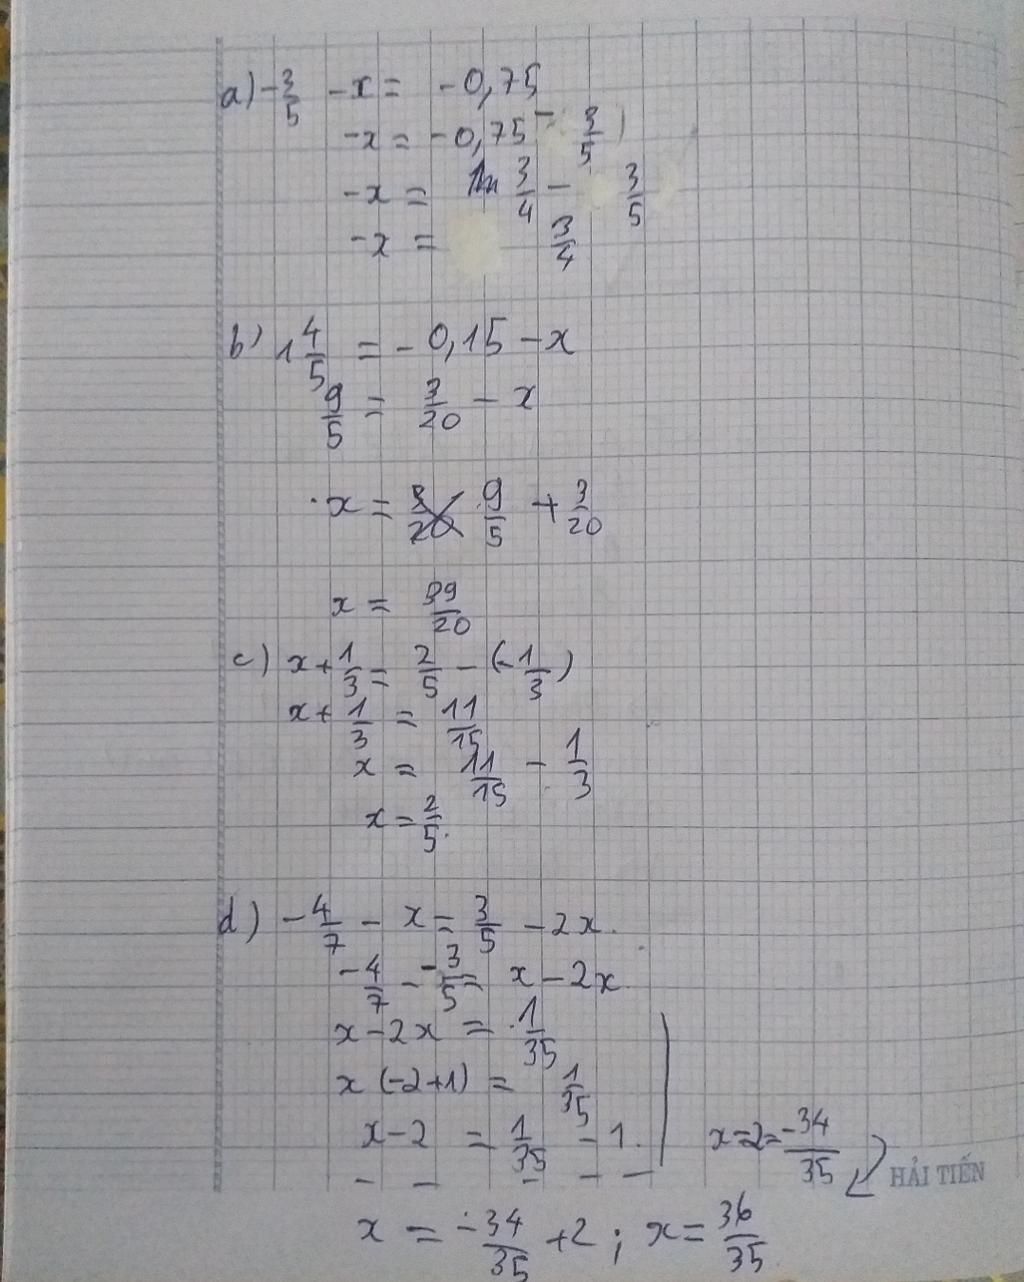 a) -3/5 - x = -0,75
-x = -0,75 - 3/5
-x = 3/4 - 3/5
-x = 3/4
b) 1 4/5 = -0,15 - x
9/5 = 3/20 - x
x = 9/5 + 3/20
x = 39/20
c) x + 1/3 = 2/5 - (-1/3)
x + 1/3 = 11/15
x = 11/15 - 1/3
x = 2/5.
d) -4/7 - x = 3/5 - 2x.
-4/7 - -3/5 = x - 2x
x - 2x = 1/35
x (-2+1) = 1/35
x - 2 = 1/35 - 1.
x - 2 = -34/35
HẢI TIẾN
x = -34/35 + 2 ; x = 36/35